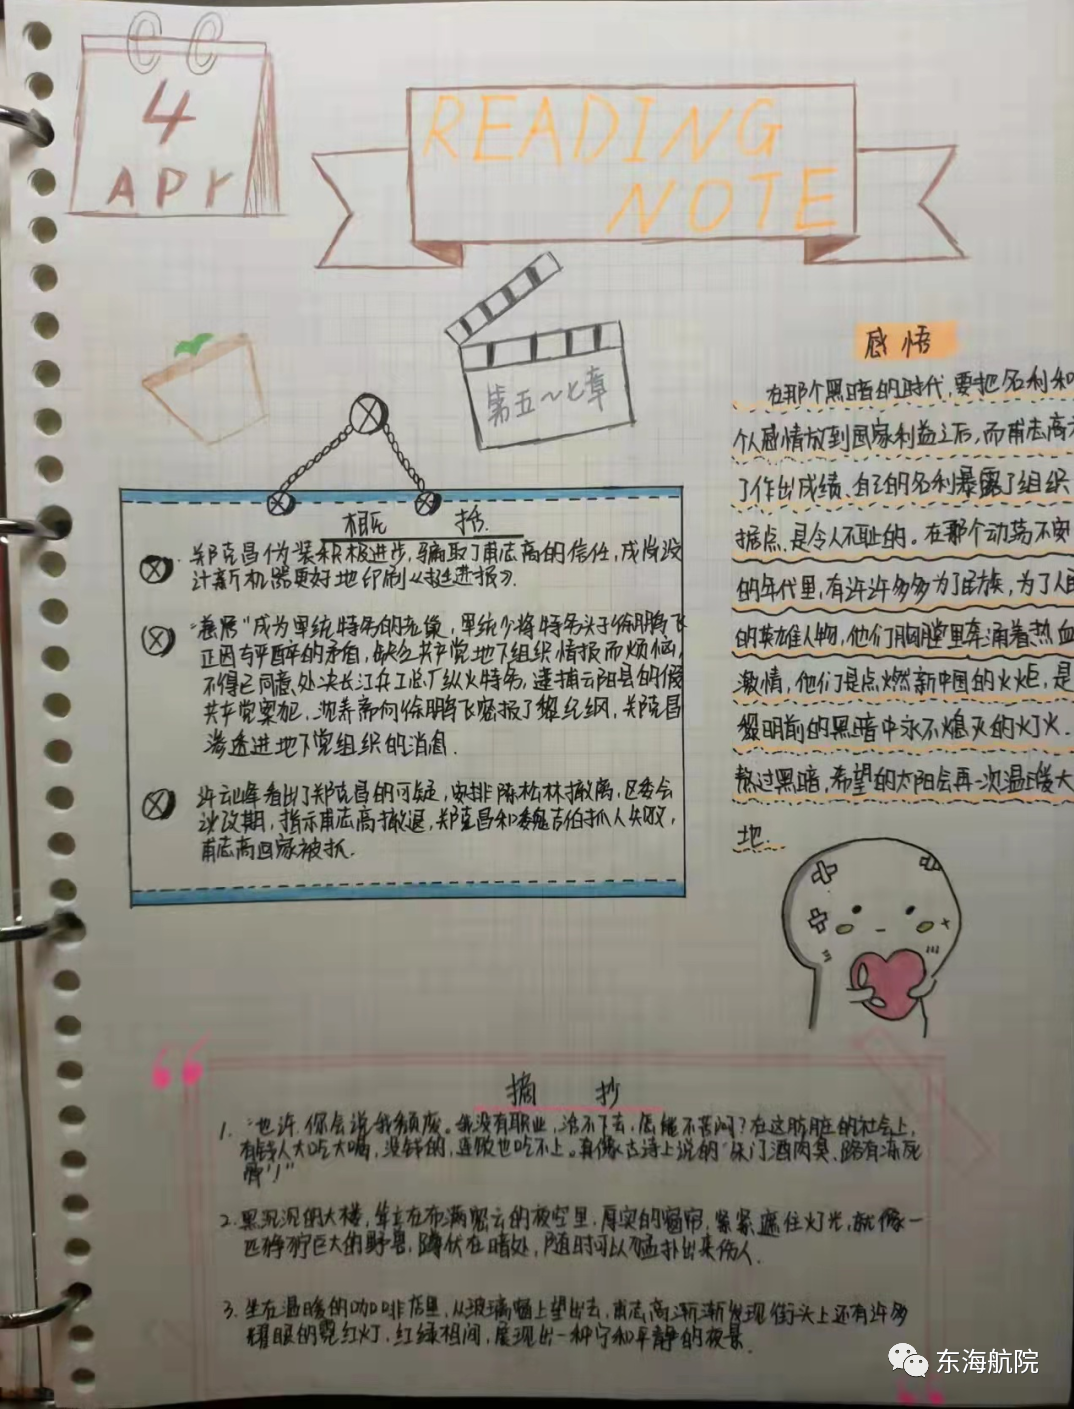 4
APR
READING
NOTE
第五~七章
概 括
郑克昌伪装积极进步，骗取了甫志高的信任，成岗设
计新机器更好地印刷《挺进报》.
成为军统特务的 军统少将特务头子徐鹏飞
正因与严醉的矛盾，缺乏共产党地下组织情报而烦恼,
不得已同意处决长江兵工总厂纵火特务，逮捕云阳县的假
共产党案犯，沈养斋向徐鹏飞密报了黎纪纲，郑克昌
渗透进地下党组织的消息.
许云峰看出了郑克昌的可疑，安排陈松林撤离，区委会
议改期，指示甫志高撤退，郑克昌和魏吉伯抓人失败，
甫志高回家被抓.
感悟
在那个黑暗的时代,要把名利和
个人感情放到国家利益之后,而甫志高为
了作出成绩、自己的名利暴露了组织
据点,是令人不耻的。在那个动荡不安
的年代里,有许许多多为了民族,为了人民
的英雄人物,他们胸膛里奔涌着热血
激情，他们是点燃新中国的火炬，是
黎明前的黑暗中永不熄灭的灯火.
熬过黑暗,希望的太阳会再一次温暖大
地.
摘 抄
1. "也许,你会说我颓废。我没有职业，活不下去，底能不苦闷？在这肮脏的社会上，
有钱人大吃大喝，没钱的，连饭也吃不上。真像古诗上说的"朱门酒肉臭、路有冻死
骨"！"
2. 黑沉沉的大楼，耸立在布满密云的夜空里，厚实的窗帘，紧紧遮住灯光，就像一
匹狰狞巨大的野兽，蹲伏在暗处，随时可以猛扑出来伤人.
3. 坐在温暖的咖啡店里，从玻璃窗上望出去，甫志高渐渐发现街头上还有许多
耀眼的霓红灯，红绿相间，展现出一种宁和平静的夜景.
东海航院